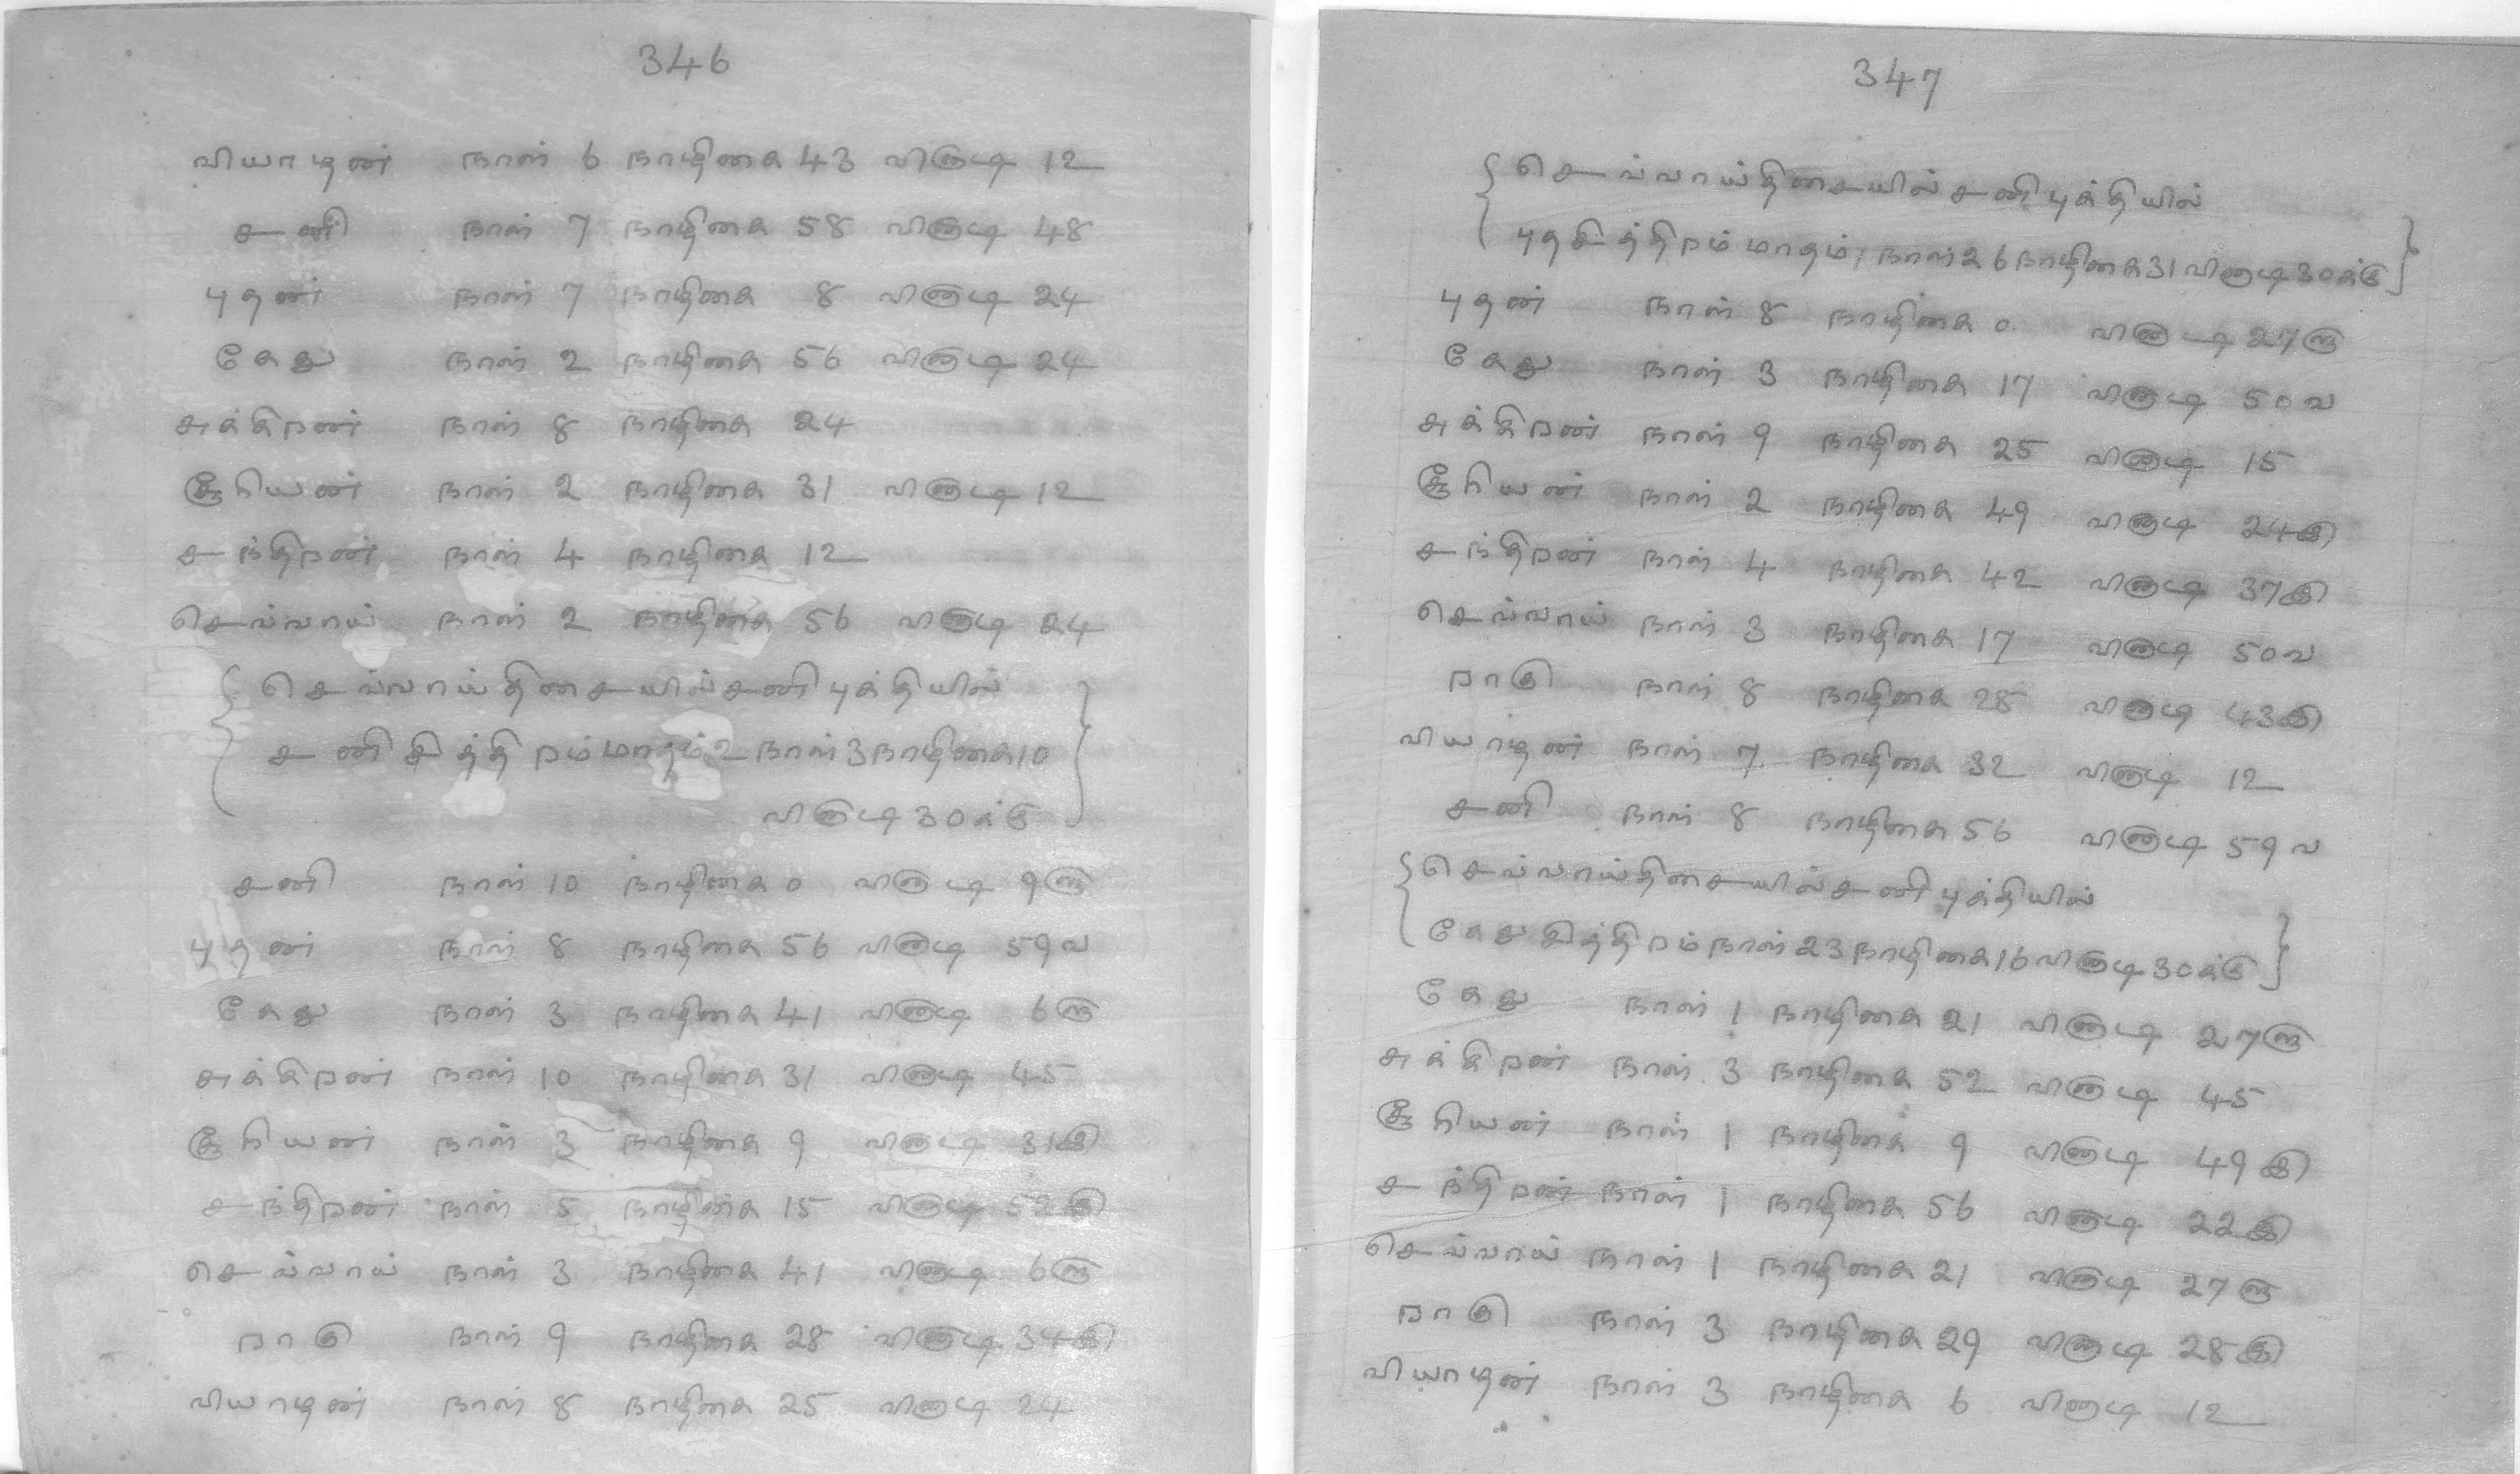 346
வியாழன் நாள் 6 நாழிகை 43 விநாடி 12
சனி நாள் 7 நாழிகை 58 விநாடி 48
புதன் நாள் 7 நாழிகை 8 விநாடி 24
கேது நாள் 2 நாழிகை 56 விநாடி 24
சுக்கிறன் நாள் 8 நாழிகை 24
சூரியன் நாள் 2 நாழிகை 31 விநாடி 12
சந்திறன் நாள் 4 நாழிகை 12
செவ்வாய் நாள் 2 நாழிகை 56 விநாடி 24
{ செவ்வாய்திசையில்சனிபுக்தியில்
சனிசித்திறம்மாதம்2நாள்3நாழிகை10
விநாடி30க்கு }
சனி நாள் 10 நாழிகை 0 விநாடி 9௫
புதன் நாள் 8 நாழிகை 56 விநாடி 59வ
கேது நாள் 3 நாழிகை 41 விநாடி 6௫
சுக்கிறன் நாள் 10 நாழிகை 31 விநாடி 45
சூரியன் நாள் 3 நாழிகை 9 விநாடி 31இ
சந்திறன் நாள் 5 நாழிகை 15 விநாடி 52இ
செவ்வாய் நாள் 3 நாழிகை 41 விநாடி 6௫
றாகு நாள் 9 நாழிகை 28 விநாடி 34இ
வியாழன் நாள் 8 நாழிகை 25 விநாடி 24
347
{ செவ்வாய்திசையில்சனிபுக்தியில்
புதசித்திறம்மாதம்1நாள்26நாழிகை31விநாடி30க்கு }
புதன் நாள் 8 நாழிகை 0 விநாடி 27௫
கேது நாள் 3 நாழிகை 17 விநாடி 50வ
சுக்கிறன் நாள் 9 நாழிகை 25 விநாடி 15
சூரியன் நாள் 2 நாழிகை 49 விநாடி 24இ
சந்திறன் நாள் 4 நாழிகை 42 விநாடி 37இ
செவ்வாய் நாள் 3 நாழிகை 17 விநாடி 50வ
றாகு நாள் 8 நாழிகை 28 விநாடி 43இ
வியாழன் நாள் 7 நாழிகை 32 விநாடி 12
சனி நாள் 8 நாழிகை 56 விநாடி 59வ
{ செவ்வாய்திசையில்சனிபுக்தியில்
கேதுசித்திறம்நாள்23நாழிகை16விநாடி30க்கு }
கேது நாள் 1 நாழிகை 21 விநாடி 27௫
சுக்கிறன் நாள் 3 நாழிகை 52 விநாடி 45
சூரியன் நாள் 1 நாழிகை 9 விநாடி 49இ
சந்திறன் நாள் 1 நாழிகை 56 விநாடி 22இ
செவ்வாய் நாள் 1 நாழிகை 21 விநாடி 27௫
றாகு நாள் 3 நாழிகை 29 விநாடி 28இ
வியாழன் நாள் 3 நாழிகை 6 விநாடி 12